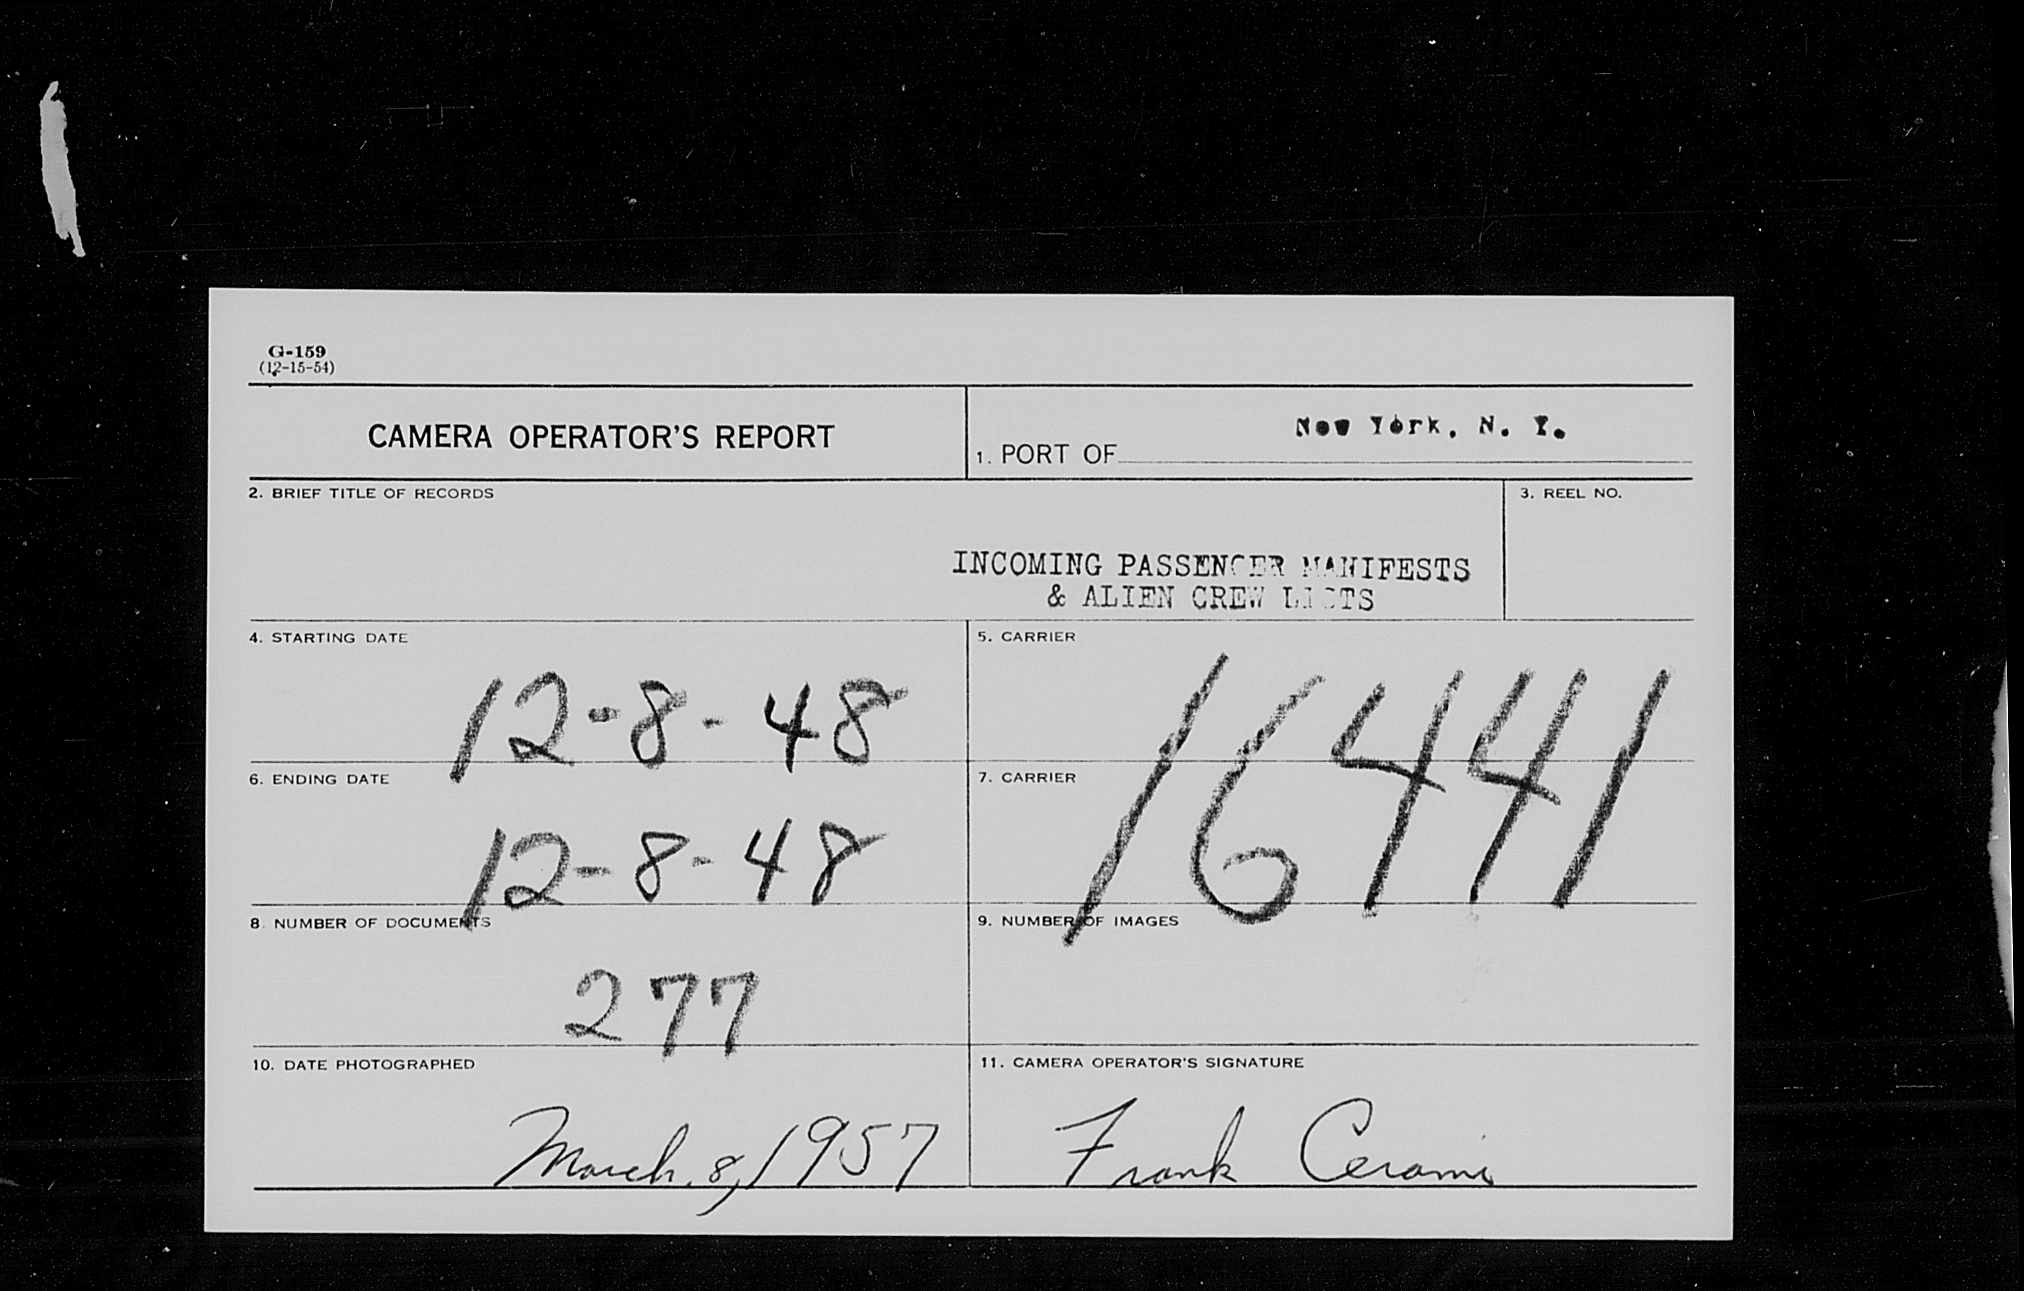 G-159
(12-15-54)
CAMERA OPERATOR'S REPORT
1. PORT OF New York, N. Y.
2. BRIEF TITLE OF RECORDS
INCOMING PASSENGER MANIFESTS
& ALIEN CREW LISTS
3. REEL NO.
4. STARTING DATE
12-8-48
5. CARRIER
16441
6. ENDING DATE
12-8-48
7. CARRIER
8. NUMBER OF DOCUMENTS
277
9. NUMBER OF IMAGES
10. DATE PHOTOGRAPHED
March. 8, 1957
11. CAMERA OPERATOR'S SIGNATURE
Frank Cerami